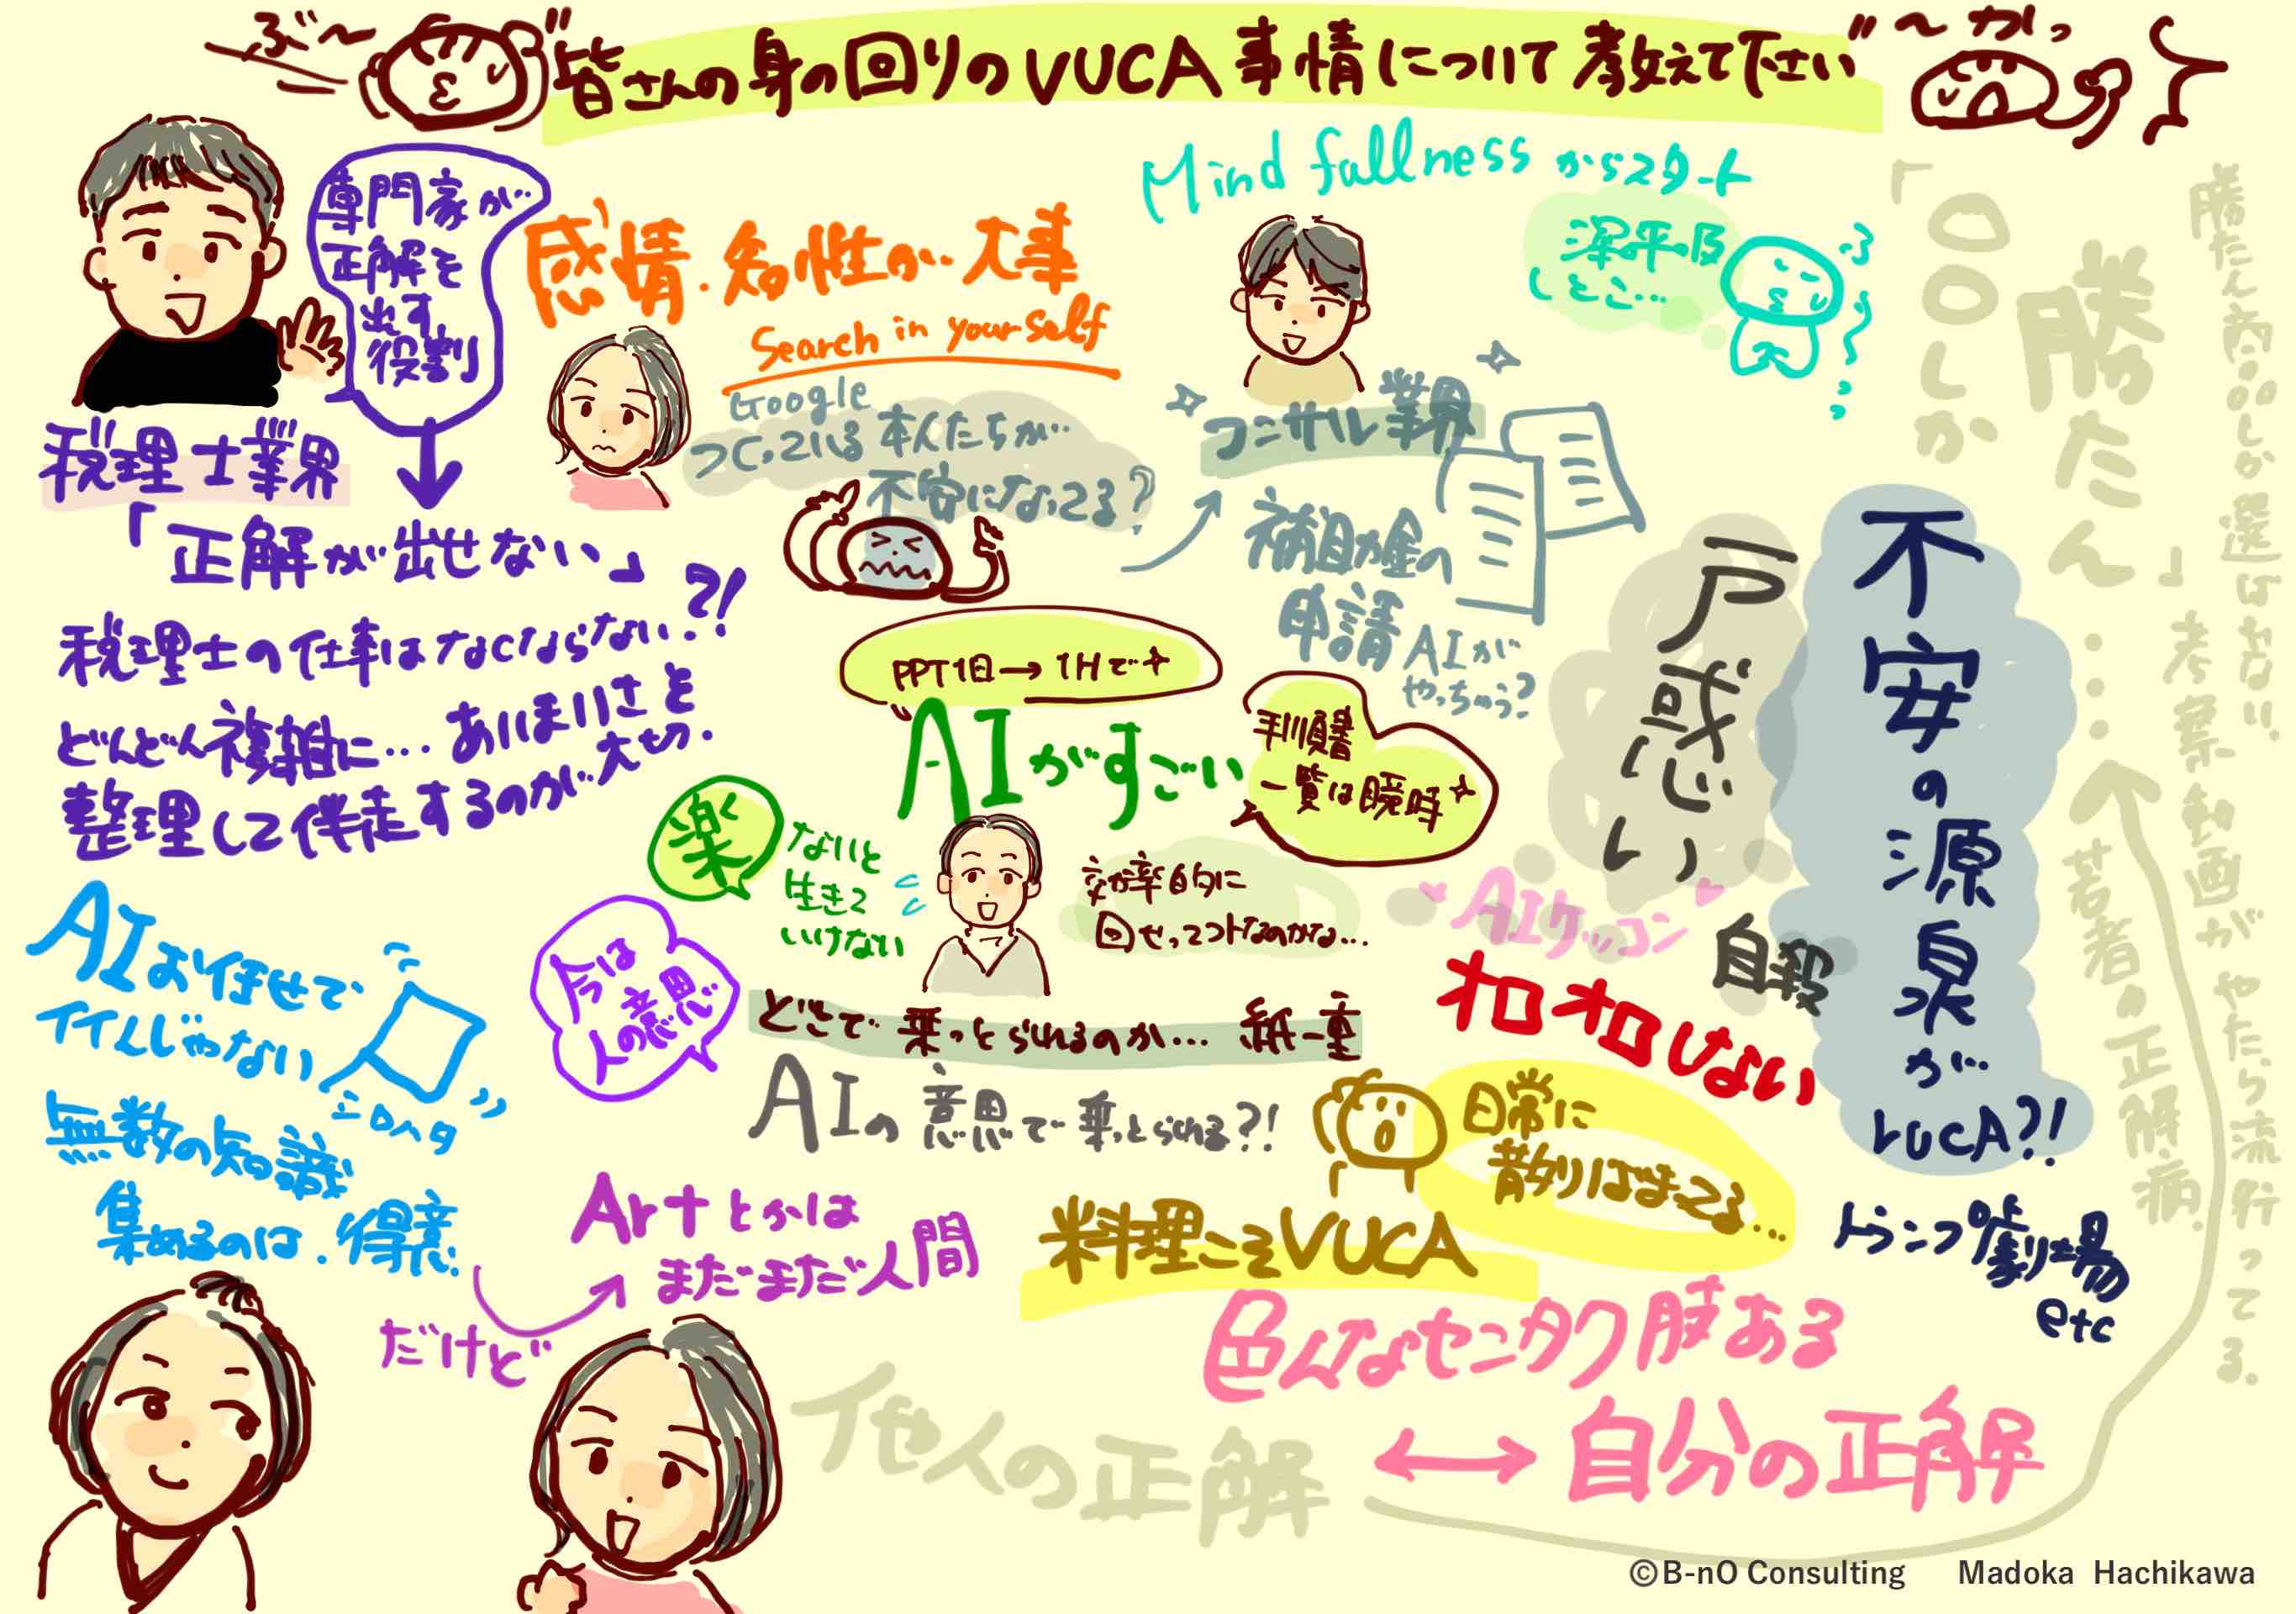 ぶ〜
"皆さんの身の回りのVUCA事情について教えて下さい"
〜かっ
専門家が
正解を
出す
役割
税理士業界
「正解が出せない」
税理士の仕事はなくならない?!
どんどん複雑に…あいまいさを
整理して伴走するのが大切.
感情・知性が大事
Search in yourself
Google
つくっている本人たちが
不安になってる?
Mind fullness からスタート
深呼吸
しとこ…
ふぅ〜
コンサル業界
補助金の
申請 AIが
やっちゃう?
「〇〇しか
勝たん」……
勝たん商品しか選ばない.
考察動画がやたら流行ってる.
若者の正解病.
不安の源泉が
VUCA?!
戸惑い
PPT1日→1Hで
AIがすごい
手順書
一覧は瞬時
楽
ないと
生きて
いけない
効率的に
回せってコトなのかな…
AIケッコン
自殺
オロオロしない
今は
人の意思
どこで乗っとられるのか…紙一重
AIの意思で乗っとられる?!
AIお任せで
イイんじゃない
シロハタ
無数の知識
集めるのは.得意.
だけど
Artとかは
まだまだ人間
日常に
散りばまってる…
料理こそVUCA
トランプ劇場
etc
色んなセンタク肢ある
他人の正解 ↔ 自分の正解
©B-nO Consulting Madoka Hachikawa